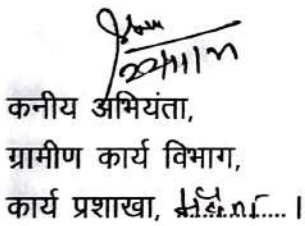 कनीय अभियंता,
ग्रामीण कार्य विभाग,
कार्य प्रशाखा, ..... ।